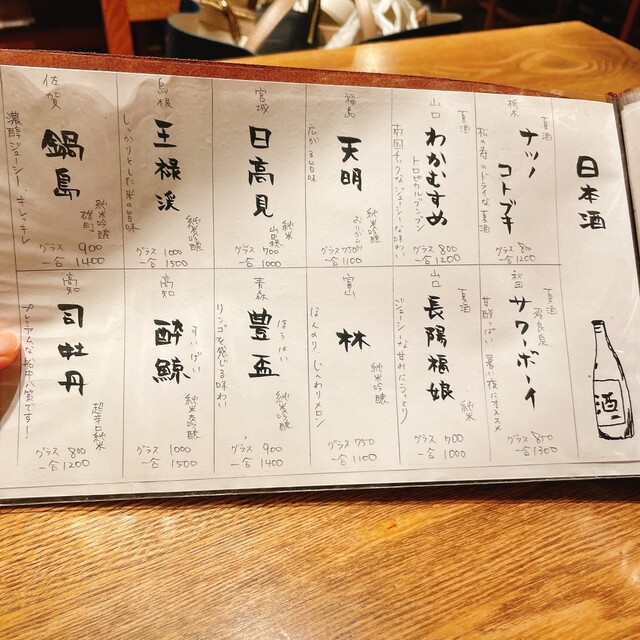 日本酒
酒
栃木
夏酒
ナツノ
コトブキ
松の寿のドライな夏酒
グラス 800
一合 1200
山口
夏酒
わかむすめ
トロピカルプンプン
南国チックなジューシーな味わい
グラス 800
一合 1200
福島
天明
広がる旨味
純米吟醸
おりがらみ
グラス 750
一合 1100
宮城
日高見
純米
山田錦
グラス 700
一合 1000
島根
王祿渓
しっかりとした米の旨味
純米吟醸
グラス 1000
一合 1500
佐賀
鍋島
純米吟醸
雄町
濃醇ジューシー、キレ、キレ
グラス 900
一合 1400
秋田
夏酒
サワーボーイ
甘酸っぱい 暑い夜にオススメ
グラス 850
一合 1300
山口
夏酒
長陽福娘
純米
ジューシーな甘みにうっとり
グラス 700
一合 1000
富山
林
純米吟醸
ほんのり、じんわりメロン
グラス 750
一合 1100
青森
豊盃
ほうはい
純米吟醸
リンゴを感じる味わい
グラス 900
一合 1400
高知
酔鯨
すいげい
純米大吟醸
グラス 1000
一合 1500
高知
司牡丹
超辛口純米
プレミアムな船中八策です!
グラス 800
一合 1200